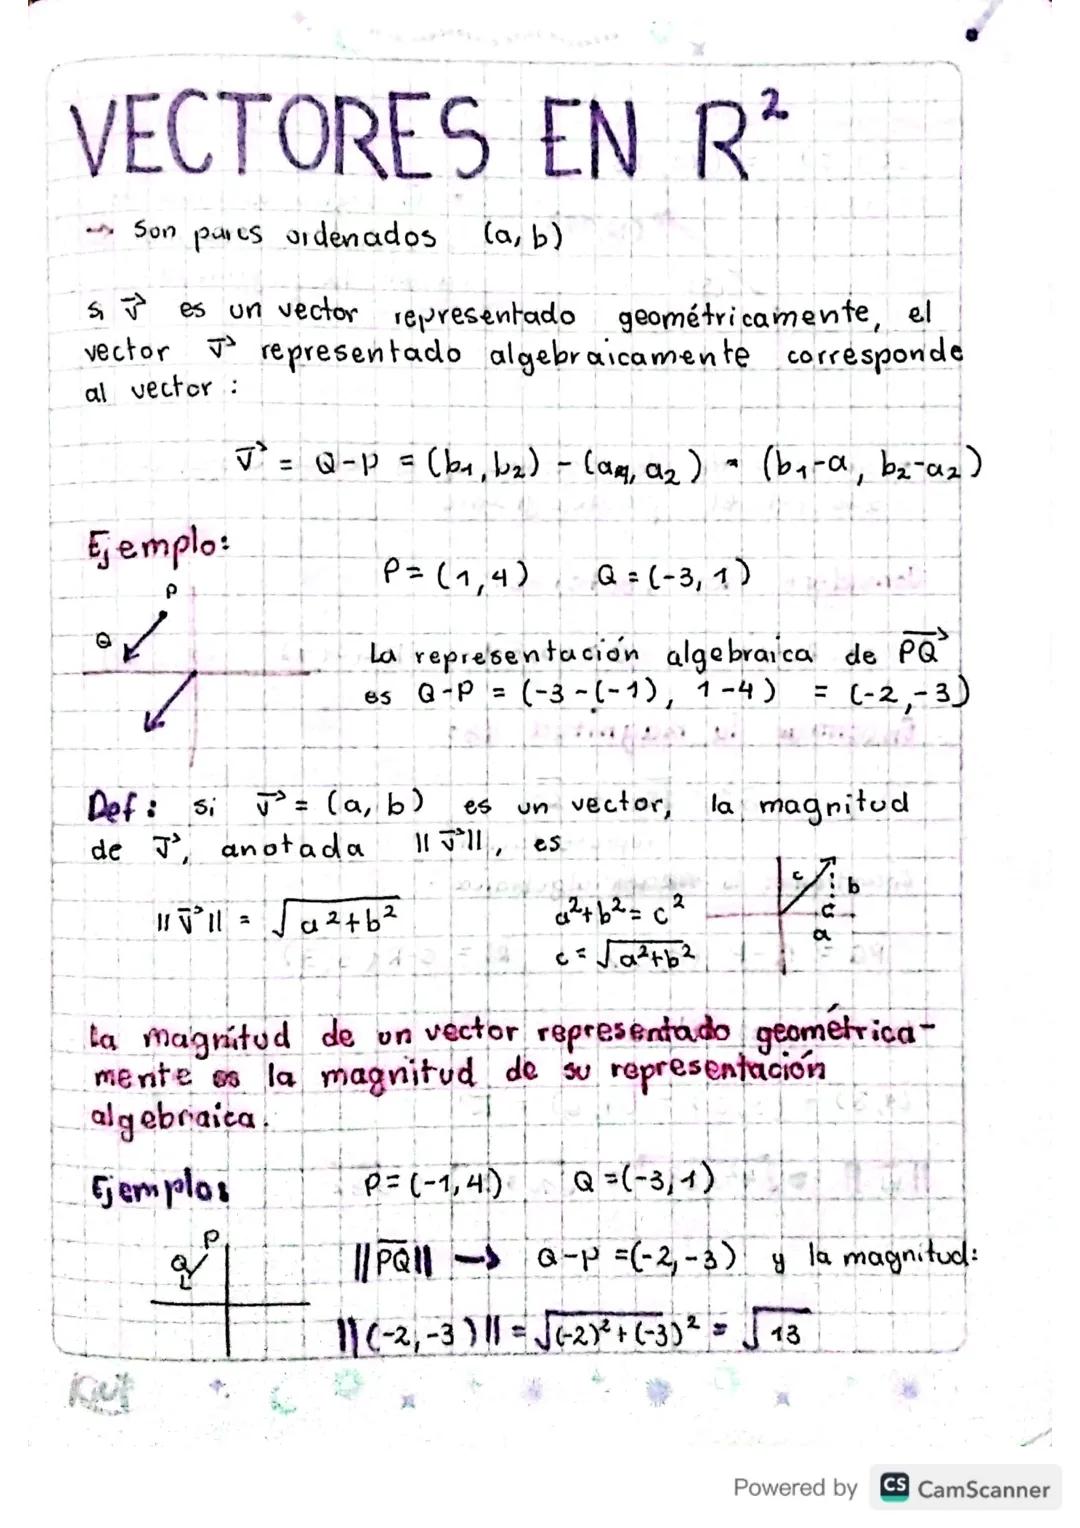 VECTORES EN R²
→ Son pares ordenados (a, b)
si v⃗ es un vector representado geométricamente, el
vector v⃗ representado algebraicamente corresponde
al vector :
v⃗ = Q-P = (b₁, b₂) - (a₁, a₂) = (b₁-a, b₂-a₂)
Ejemplo:
P = (1, 4) Q = (-3, 1)
P
Q
La representación algebraica de PQ⃗
es Q-P = (-3-(-1), 1-4) = (-2, -3)
Def: si v⃗ = (a, b) es un vector, la magnitud
de v⃗, anotada ||v⃗||, es
||v⃗|| = √a²+b² a²+b² = c²
c = √a²+b²
c b
a
La magnitud de un vector representado geométrica-
mente es la magnitud de su representación
algebraica.
Ejemplo: P = (-1, 4) Q = (-3, 1)
P
Q
||PQ|| → Q-P = (-2, -3) y la magnitud:
||(-2, -3)|| = √(-2)²+(-3)² = √13
Powered by CS CamScanner